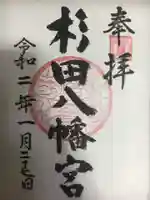 奉拝
杉田八幡宮
令和二年一月二七日